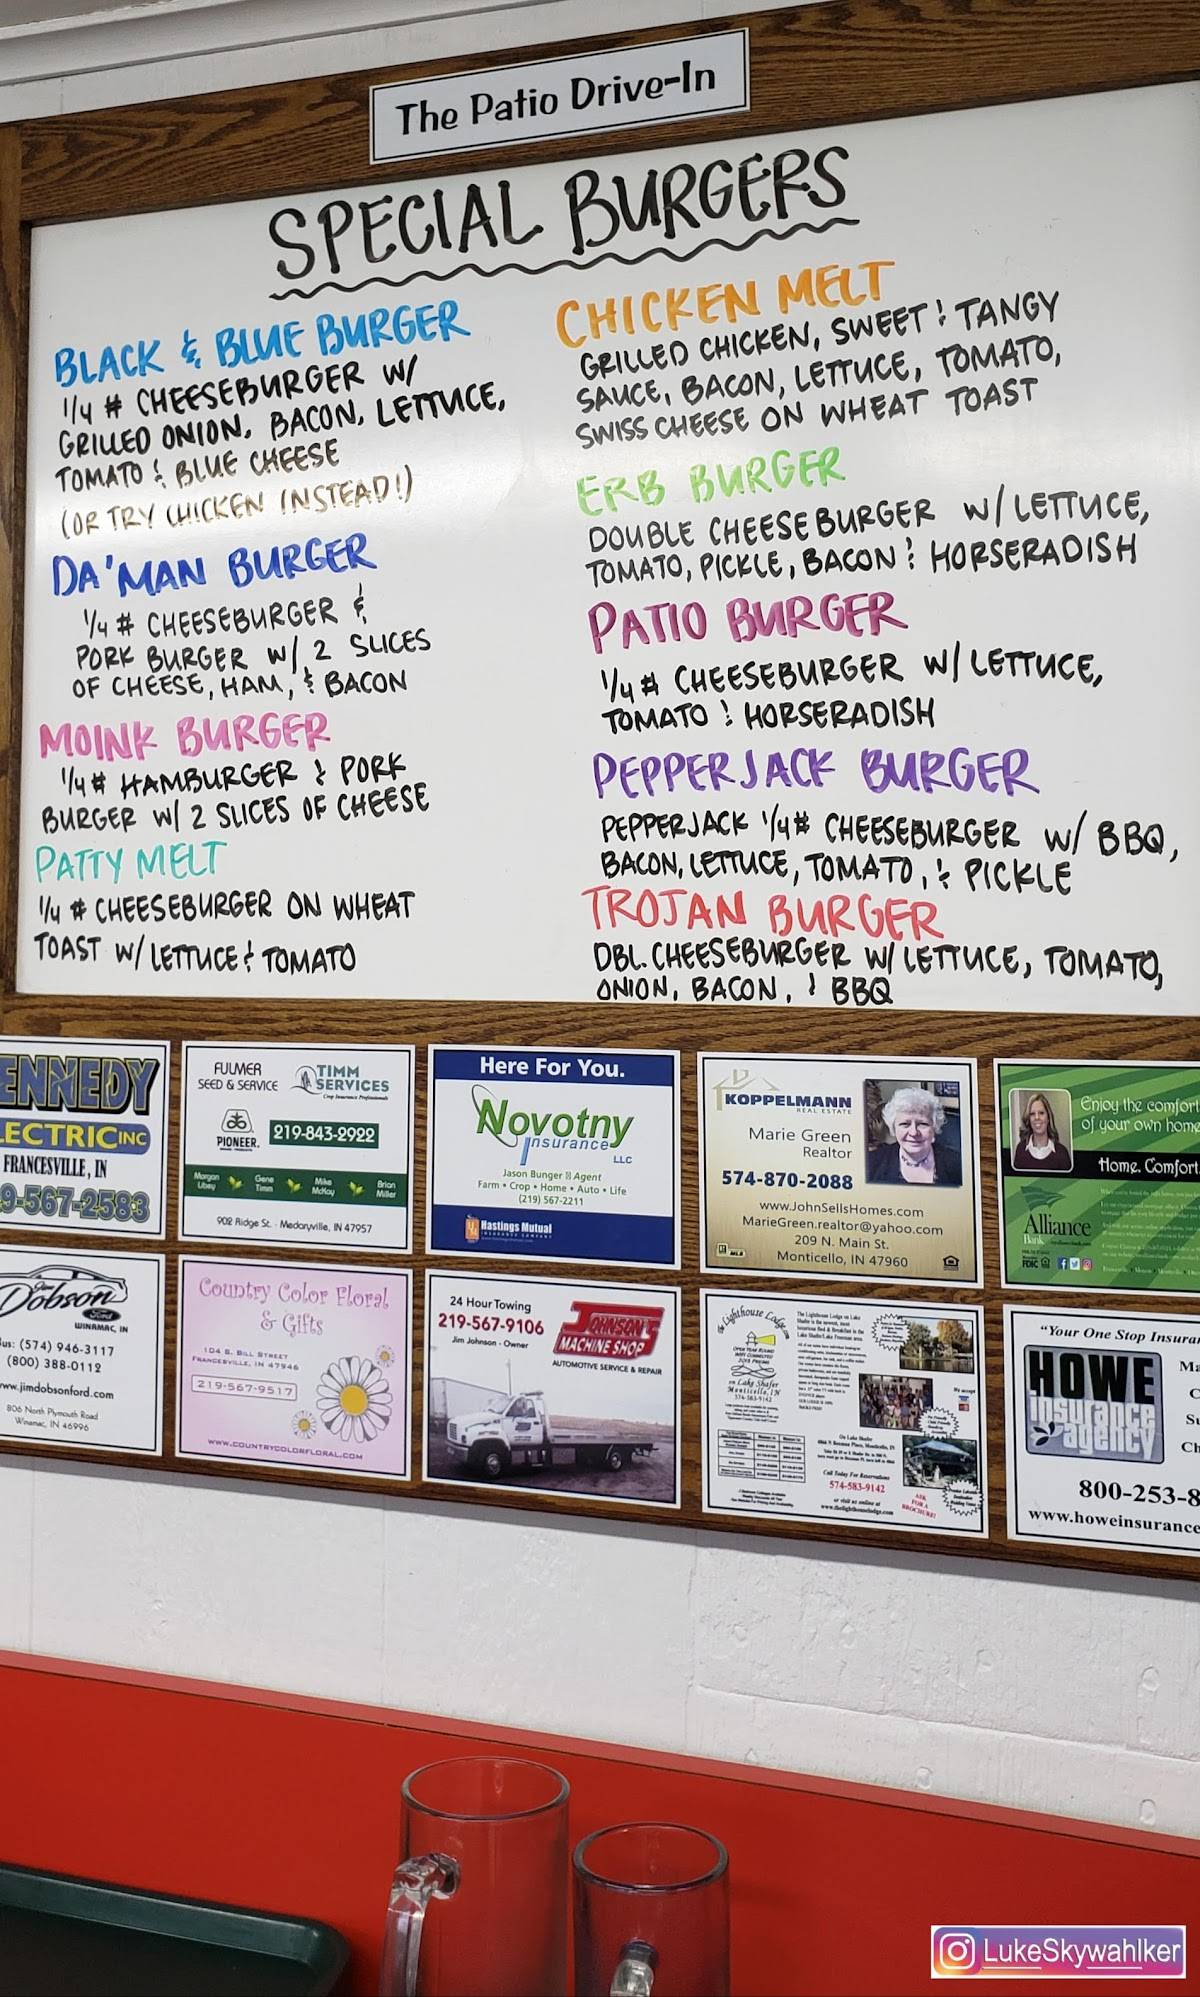 The Patio Drive-In
SPECIAL BURGERS
BLACK & BLUE BURGER
1/4 # CHEESEBURGER W/
GRILLED ONION, BACON, LETTUCE,
TOMATO & BLUE CHEESE
(OR TRY CHICKEN INSTEAD!)
DA'MAN BURGER
1/4 # CHEESEBURGER &
PORK BURGER W/ 2 SLICES
OF CHEESE, HAM, & BACON
MOINK BURGER
1/4 # HAMBURGER & PORK
BURGER W/ 2 SLICES OF CHEESE
PATTY MELT
1/4 # CHEESEBURGER ON WHEAT
TOAST W/ LETTUCE & TOMATO
CHICKEN MELT
GRILLED CHICKEN, SWEET & TANGY
SAUCE, BACON, LETTUCE, TOMATO,
SWISS CHEESE ON WHEAT TOAST
ERB BURGER
DOUBLE CHEESEBURGER W/ LETTUCE,
TOMATO, PICKLE, BACON & HORSERADISH
PATIO BURGER
1/4 # CHEESEBURGER W/ LETTUCE,
TOMATO & HORSERADISH
PEPPERJACK BURGER
PEPPERJACK 1/4 # CHEESEBURGER W/ BBQ,
BACON, LETTUCE, TOMATO, & PICKLE
TROJAN BURGER
DBL. CHEESEBURGER W/ LETTUCE, TOMATO,
ONION, BACON, & BBQ
ENNEDY
LECTRIC INC
FRANCESVILLE, IN
9-567-2583
FULMER
SEED & SERVICE
TIMM
SERVICES
Crop Insurance Professionals
PIONEER.
219-843-2922
Morgan
Ubey
Gene
Timm
Mike
McKay
Brian
Miller
902 Ridge St. · Medaryville, IN 47957
Here For You.
Novotny
Insurance
LLC
Jason Bunger Agent
Farm • Crop • Home • Auto • Life
(219) 567-2211
Hastings Mutual
INSURANCE COMPANY
KOPPELMANN
REAL ESTATE
Marie Green
Realtor
574-870-2088
www.JohnSellsHomes.com
MarieGreen.realtor@yahoo.com
209 N. Main St.
Monticello, IN 47960
MLS
Enjoy the comfort
of your own home
Home. Comfort.
Alliance
Bank
FDIC
Dobson
Ford
WINAMAC, IN
us: (574) 946-3117
(800) 388-0112
ww.jimdobsonford.com
806 North Plymouth Road
Winamac, IN 46996
Country Color Floral
& Gifts
104 S. BILL STREET
FRANCESVILLE, IN 47946
219-567-9517
WWW.COUNTRYCOLORFLORAL.COM
24 Hour Towing
219-567-9106
Jim Johnson - Owner
JOHNSON'S
MACHINE SHOP
AUTOMOTIVE SERVICE & REPAIR
the Lighthouse Lodge
on Lake Shafer
Monticello, IN
574-583-9142
On Lake Shafer
Call Today For Reservations
574-583-9142
or visit us online at
www.thelighthouselodge.com
We accept
ASK
FOR A
BROCHURE!
"Your One Stop Insura
HOWE
insurance
agency
Ma
C
Su
Ch
800-253-8
www.howeinsurance
LukeSkywahlker